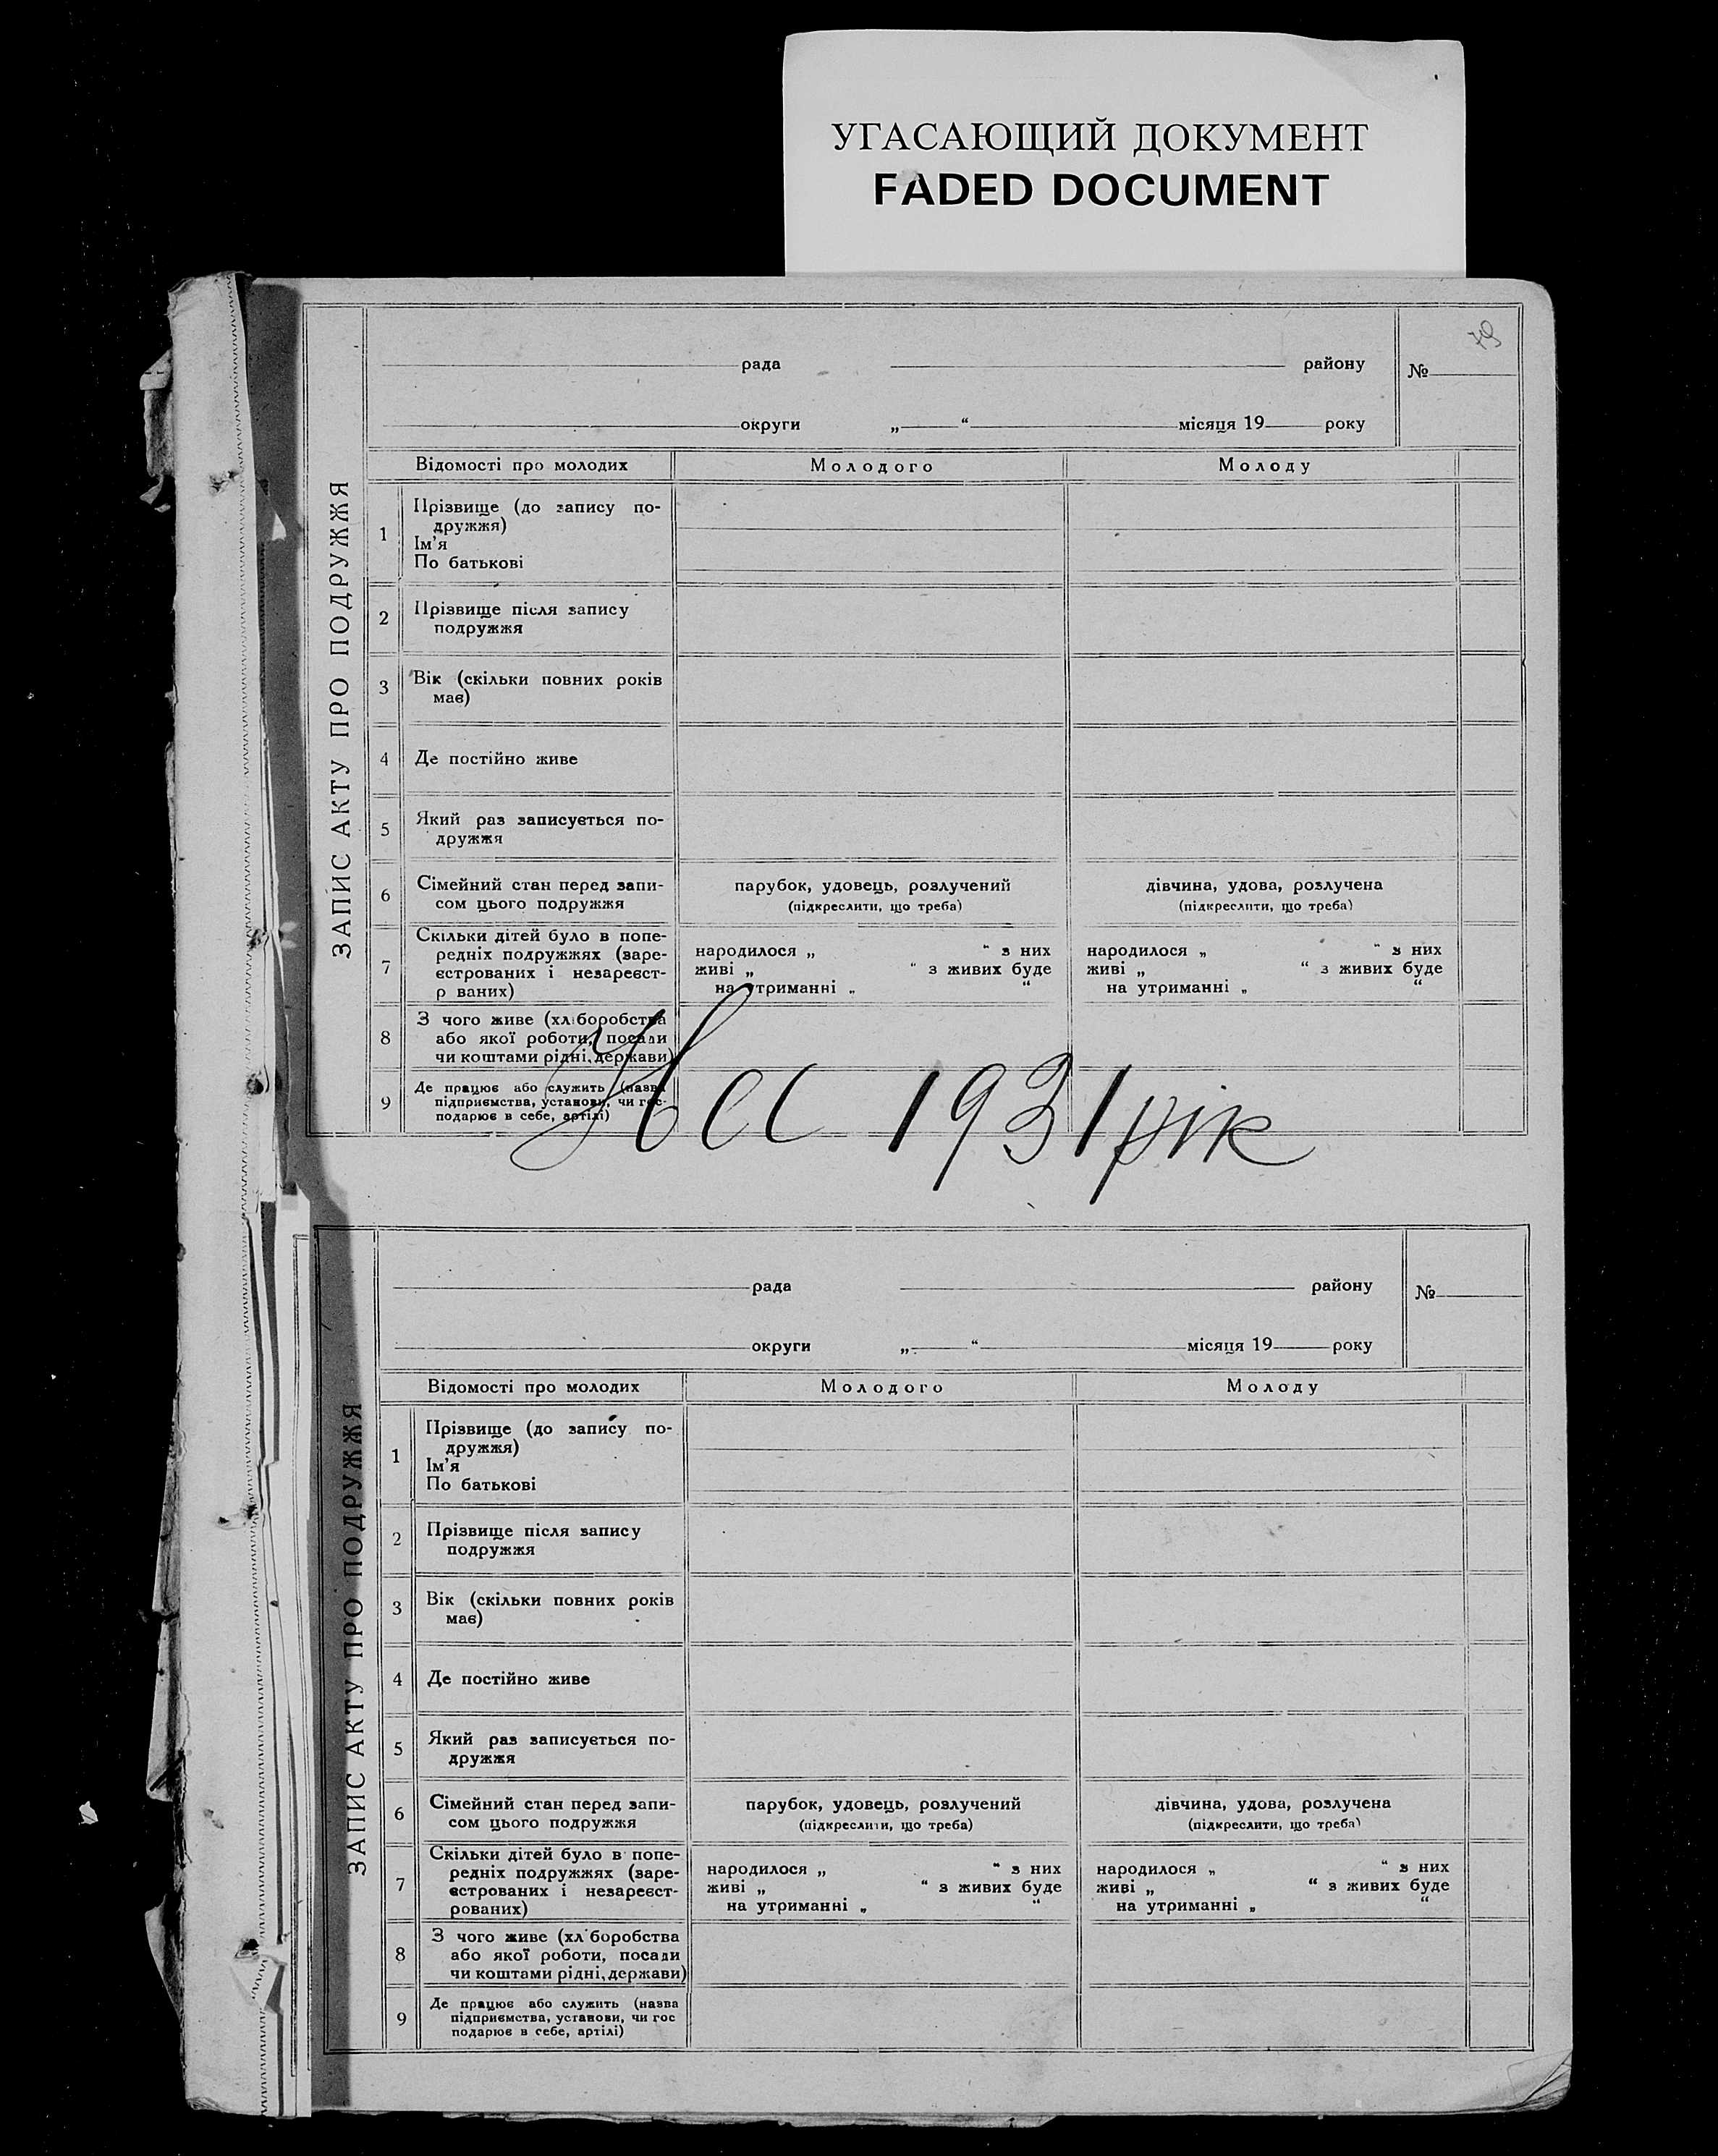 УГАСАЮЩИЙ ДОКУМЕНТ
FADED DOCUMENT
ЗАПИС АКТУ ПРО ПОДРУЖЖЯ
рада району №
округи „ “ місяця 19 року
Відомості про молодих Молодого Молоду
1 Прізвище (до запису по-
дружжя)
Ім'я
По батькові
2 Прізвище після запису
подружжя
3 Вік (скільки повних років
має)
4 Де постійно живе
5 Який раз записується по-
дружжя
6 Сімейний стан перед запи- парубок, удовець, розлучений дівчина, удова, розлучена
сом цього подружжя (підкреслити, що треба) (підкреслити, що треба)
7 Скільки дітей було в попе-
редніх подружжях (заре- народилося „ “ з них народилося „ “ з них
єстрованих і незареєст- живі „ “ з живих буде живі „ “ з живих буде
р ваних) на утриманні „ “ на утриманні „ “
8 З чого живе (хліборобства
або якої роботи, посади
чи коштами рідні, держави)
9 Де працює або служить (назва
підприємства, установи, чи гос-
подарює в себе, артілі)
1931 рік
ЗАПИС АКТУ ПРО ПОДРУЖЖЯ
рада району №
округи „ “ місяця 19 року
Відомості про молодих Молодого Молоду
1 Прізвище (до запису по-
дружжя)
Ім'я
По батькові
2 Прізвище після запису
подружжя
3 Вік (скільки повних років
має)
4 Де постійно живе
5 Який раз записується по-
дружжя
6 Сімейний стан перед запи- парубок, удовець, розлучений дівчина, удова, розлучена
сом цього подружжя (підкреслити, що треба) (підкреслити, що треба)
7 Скільки дітей було в попе-
редніх подружжях (заре- народилося „ “ з них народилося „ “ з них
єстрованих і незареєст- живі „ “ з живих буде живі „ “ з живих буде
рованих) на утриманні „ “ на утриманні „ “
8 З чого живе (хл боробства
або якої роботи, посади
чи коштами рідні, держави)
9 Де працює або служить (назва
підприємства, установи, чи гос
подарює в себе, артілі)